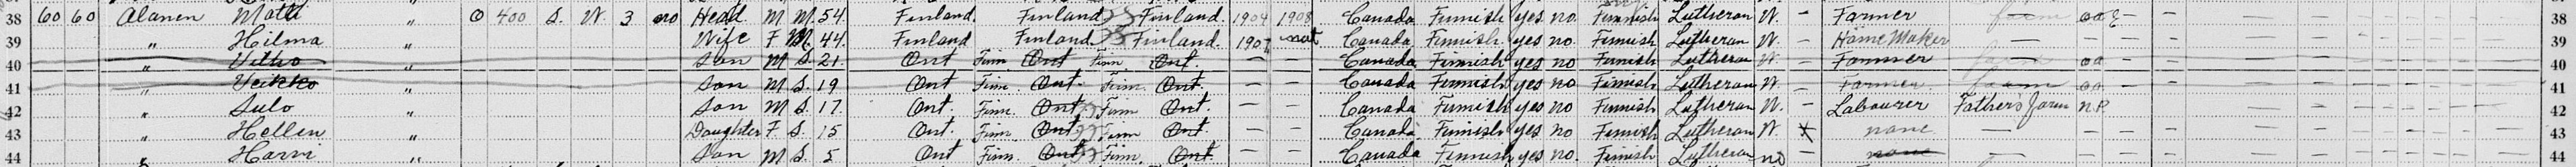 38 60 60 Alanen Matti " O 400 S. W. 3 no Head M M 54. Finland. Finland Finland. 1904 1908 Canada Finnish yes no. Finnish Lutheran W. – Farmer farm oa – – – – 38
39 " Hilma " Wife F M. 44. Finland Finland Finland. 1907 nat Canada Finnish yes no. Finnish Lutheran W. – Home Maker – – – – 39
40 " " Son M S. 21. Ont Finn. Ont Finn Ont. – – Canada Finnish yes no Finnish Lutheran W – Farmer farm oa – – – 40
41 " Veikko Son M S. 19 Ont Finn. Ont. Finn. Ont. – – Canada Finnish yes no Finnish Lutheran W – Farmer farm oa – – – 41
42 " Sulo " Son M S. 17. Ont. Finn. Ont Finn Ont. – – Canada Finnish yes no Finnish Lutheran W. – Labourer Fathers farm n.p. – – – 42
43 " Hellen " Daughter F. S. 15 Ont. Finn. Ont Finn Ont. – – Canada Finnish yes no Finnish Lutheran W. none – – – – 43
44 " Harvi " Son M S. 5 Ont Finn. Ont Finn. Ont. – – Canada Finnish yes no. Finnish Lutheran no – none – – – – 44